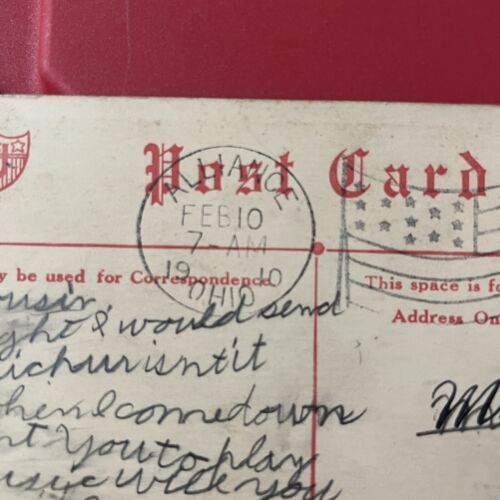 Post Card
ALLIANCE
FEB 10
7-AM
1910
OHIO
y be used for Correspondence
This space is fo
Address On
ousin,
ght I would send
ichur isn't it
hen I come down
nt You to play
usic with you